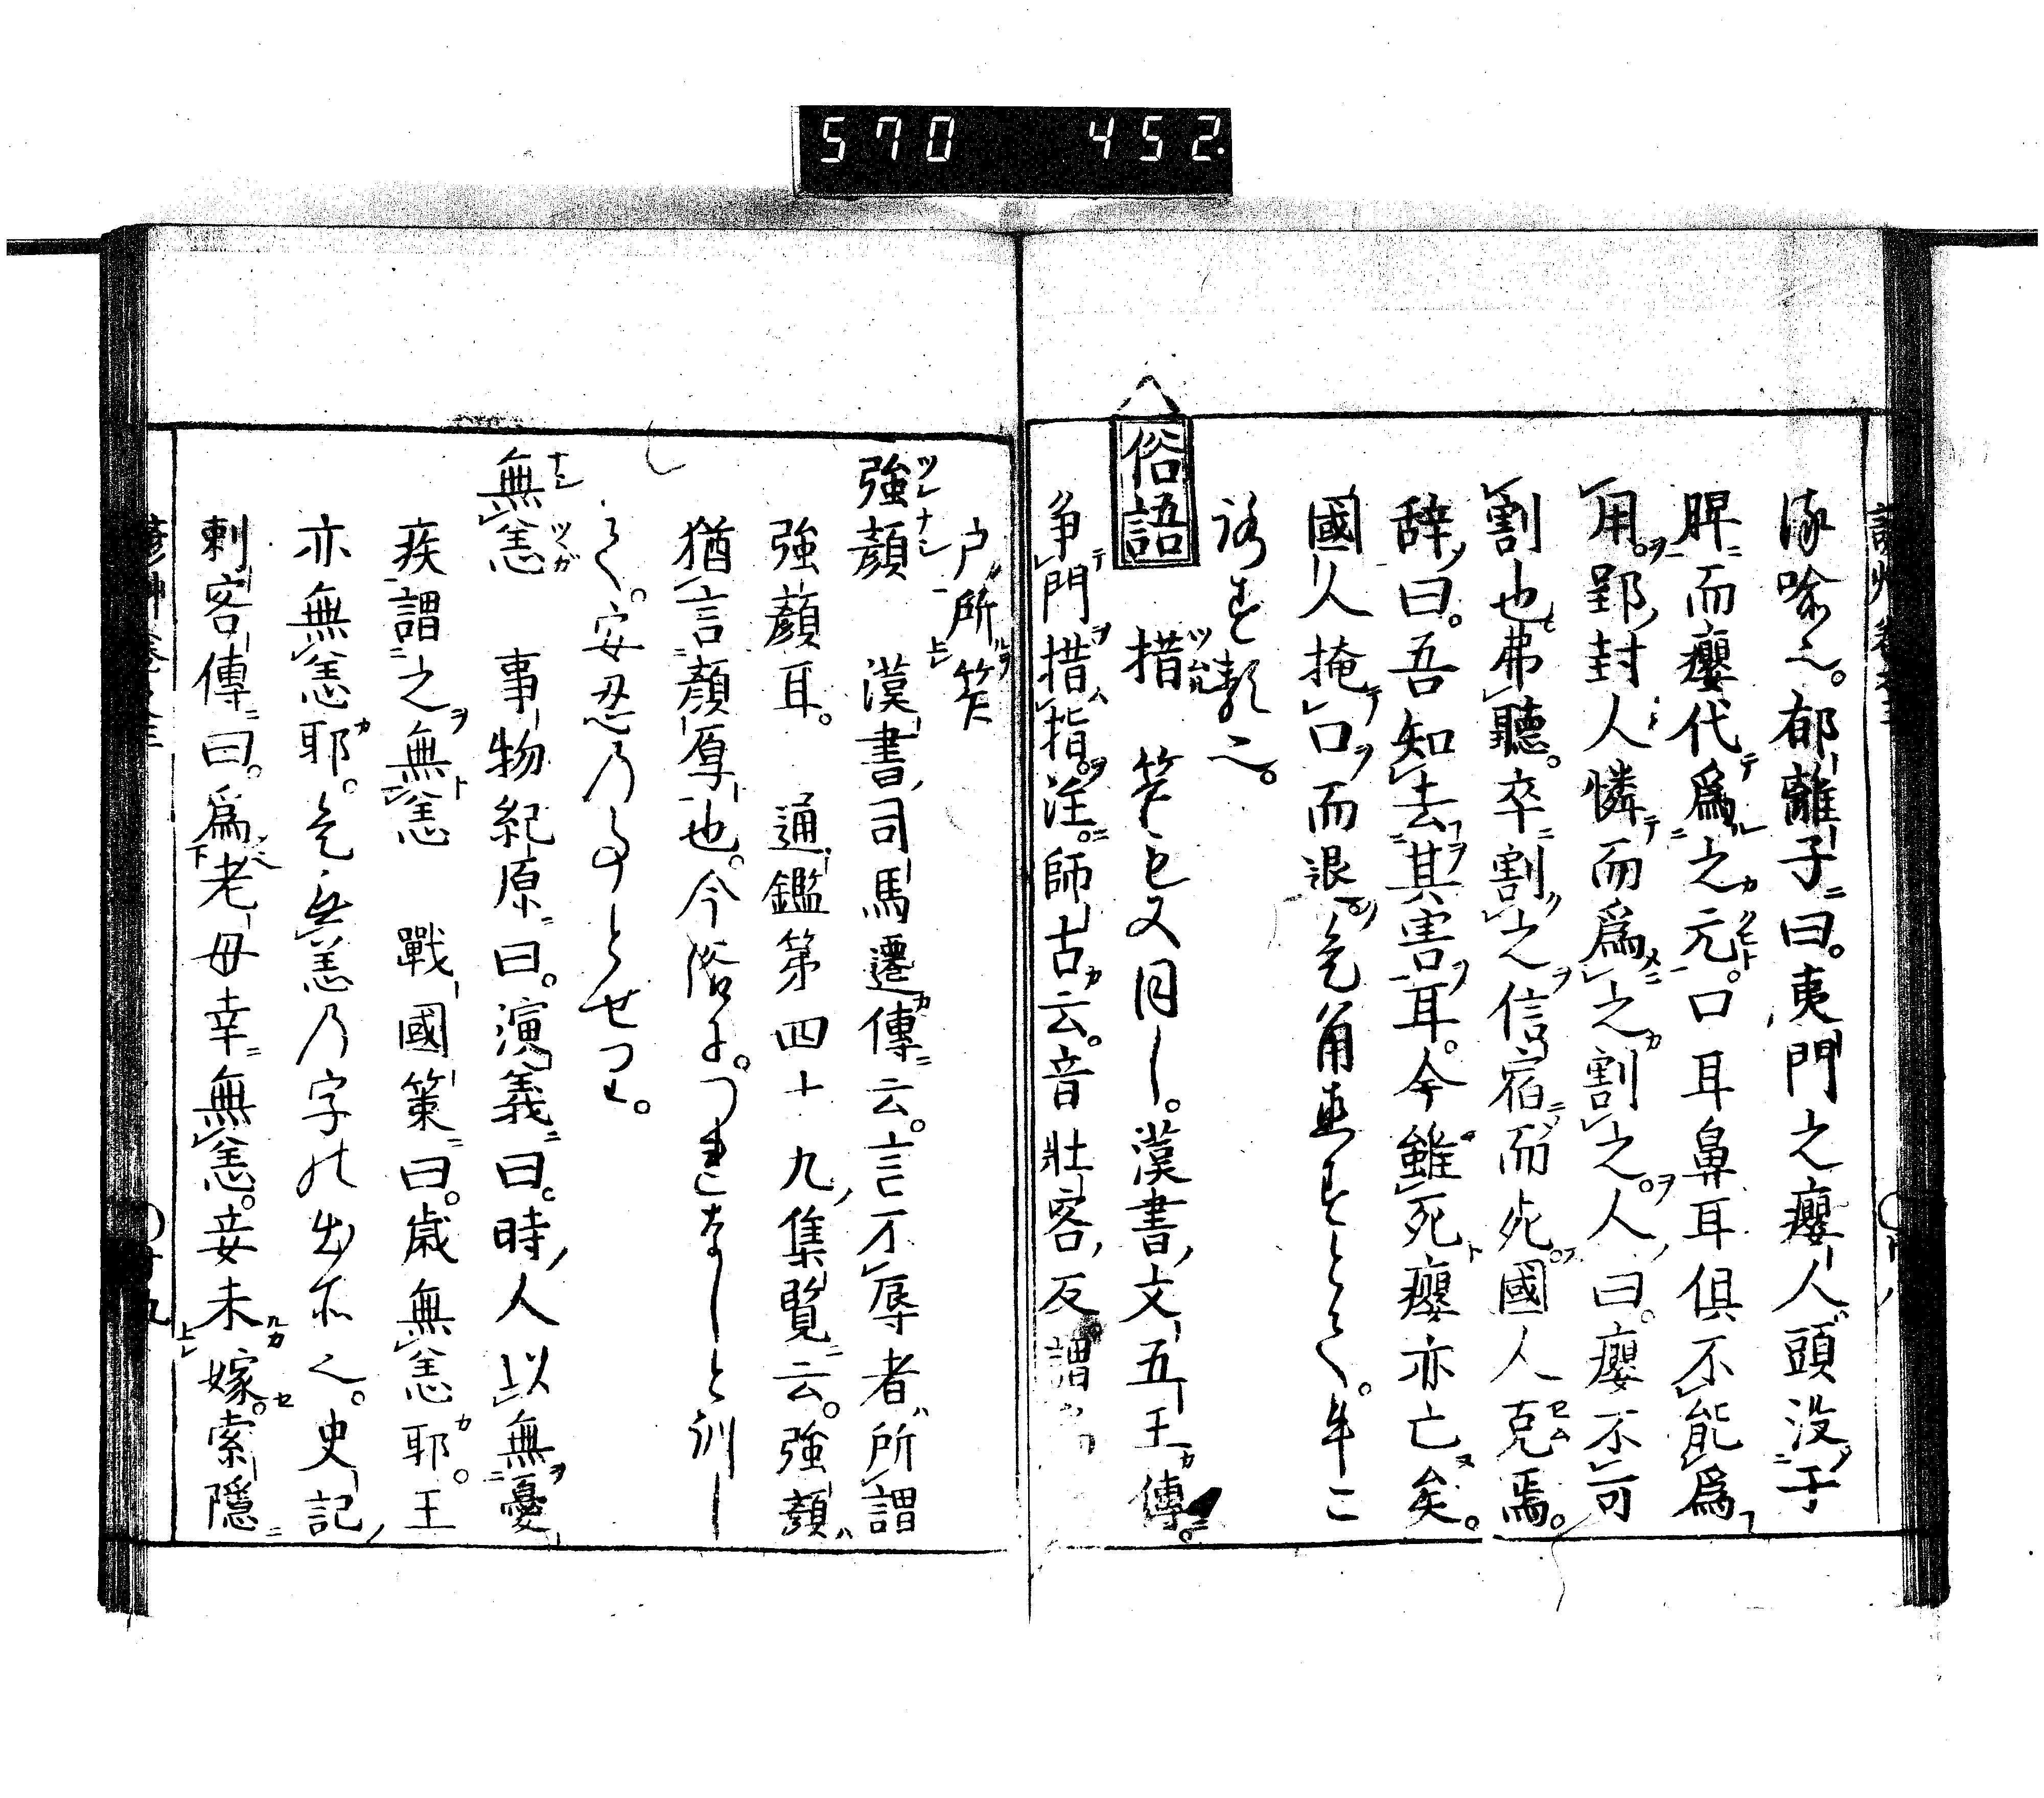 570 452.
深喩也。郁離子曰。夷門之癭人頭没于
胛而癭代爲之元。口耳鼻耳俱不能爲
用。郢封人憐而爲之割之。人曰。癭不可
割也弗聽。卒割之信宿而死。國人克焉。
辞曰。吾知去其害耳。今雖死癭亦亡矣。
國人掩口而退。
俗語 措 笮也又同し。漢書文五王傳。
爭門措指。注。師古云。音壯客反謂
户所笮
強顏 漢書司馬遷傳云。言不辱者所謂
強顏耳。 通鑑第四十九集覧云。強顏
猶言顏厚也。今俗に。つれなしと訓し
て。安忍乃ことせり。
無恙 事物紀原曰。演義曰。時人以無憂
疾謂之無恙 戰國策曰。歳無恙耶。王
亦無恙耶。是無恙乃字の出所也。史記
刺客傳曰。爲老母幸無恙。妾未嫁。索隱